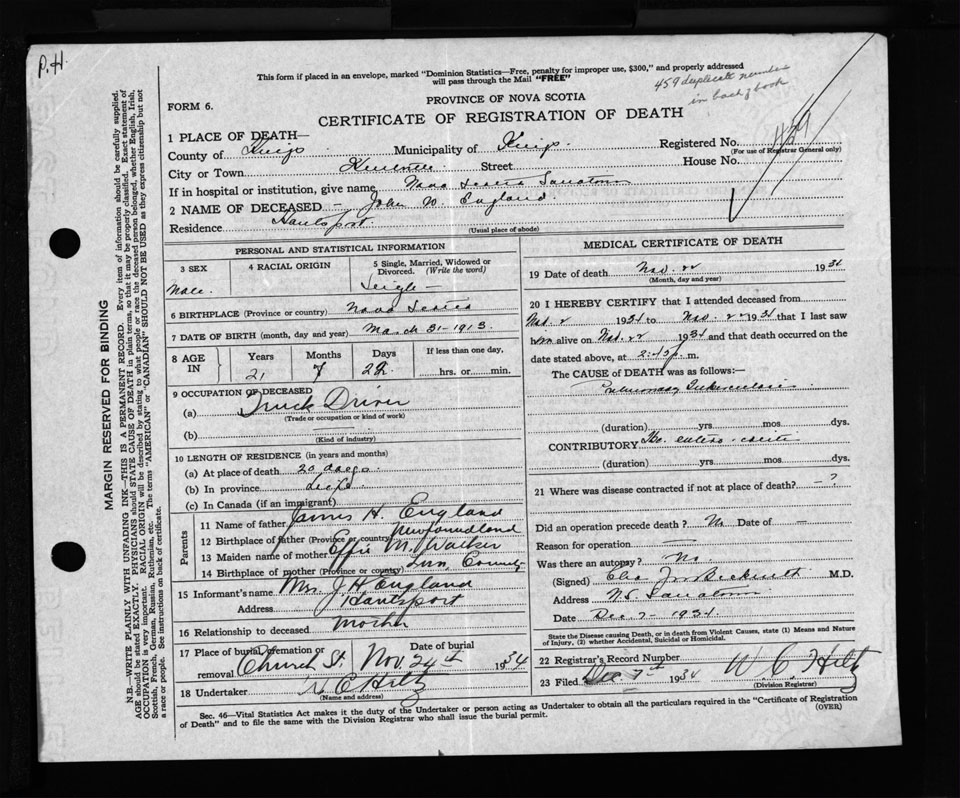 P.H.
This form if placed in an envelope, marked "Dominion Statistics—Free, penalty for improper use, $300," and properly addressed
will pass through the Mail "FREE"
459 duplicate number
in back of book
FORM 6.
PROVINCE OF NOVA SCOTIA
CERTIFICATE OF REGISTRATION OF DEATH
1 PLACE OF DEATH—
County of Kings Municipality of Kings Registered No. 459
(For use of Registrar General only)
City or Town Kentville Street House No.
If in hospital or institution, give name Nova Scotia Sanatorium
2 NAME OF DECEASED — John W. England.
Residence Hantsport
(Usual place of abode)
MARGIN RESERVED FOR BINDING
N.B.—WRITE PLAINLY WITH UNFADING INK—THIS IS A PERMANENT RECORD. Every item of information should be carefully supplied.
AGE should be stated EXACTLY. PHYSICIANS should STATE CAUSE OF DEATH in plain terms, so that it may be properly classified. Exact statement of
OCCUPATION is very important. RACIAL ORIGIN will be described by stating to what people or race the deceased person belonged, whether English, Irish,
Scottish, French, German, Russian, Ruthenian, etc. The terms "AMERICAN" or "CANADIAN" SHOULD NOT BE USED as they express citizenship but not
a race or people. See instructions on back of certificate.
PERSONAL AND STATISTICAL INFORMATION
3 SEX
Male.
4 RACIAL ORIGIN
5 Single, Married, Widowed or
Divorced. (Write the word)
Single —
6 BIRTHPLACE (Province or country) Nova Scotia
7 DATE OF BIRTH (month, day and year) March 31-1913.
8 AGE
IN
Years
21
Months
7
Days
22
If less than one day,
hrs. or min.
9 OCCUPATION OF DECEASED
(a) Truck Driver
(Trade or occupation or kind of work)
(b)
(Kind of industry)
10 LENGTH OF RESIDENCE (in years and months)
(a) At place of death 20 days
(b) In province Life
(c) In Canada (if an immigrant)
Parents
11 Name of father James H. England
12 Birthplace of father (Province or country) Newfoundland
13 Maiden name of mother Effie M. Walker
14 Birthplace of mother (Province or country) County
15 Informant's name Mrs. J. H. England
Address Hantsport
16 Relationship to deceased Mother
17 Place of burial, cremation or
removal Church St.
Date of burial
Nov. 24th 1934
18 Undertaker W C Hiltz
(Name and address)
MEDICAL CERTIFICATE OF DEATH
19 Date of death Nov. 22 1934
(Month, day and year)
20 I HEREBY CERTIFY that I attended deceased from
Nov. 2 1934 to Nov. 22 1934 that I last saw
him alive on Nov. 22 1934 and that death occurred on the
date stated above, at m.
The CAUSE of DEATH was as follows:—
Pulmonary Tuberculosis
(duration) yrs mos dys.
CONTRIBUTORY
(duration) yrs mos dys.
21 Where was disease contracted if not at place of death? — ?
Did an operation precede death? No Date of —
Reason for operation —
Was there an autopsy? No
(Signed) M.D.
Address N.S. Sanatorium
Date Dec 7 - 1934.
State the Disease causing Death, or in death from Violent Causes, state (1) Means and Nature
of Injury, (2) whether Accidental, Suicidal or Homicidal.
22 Registrar's Record Number
23 Filed Dec 7th 1934 W. C. Hiltz
(Division Registrar)
Sec. 46—Vital Statistics Act makes it the duty of the Undertaker or person acting as Undertaker to obtain all the particulars required in the "Certificate of Registration
of Death" and to file the same with the Division Registrar who shall issue the burial permit.
(OVER)